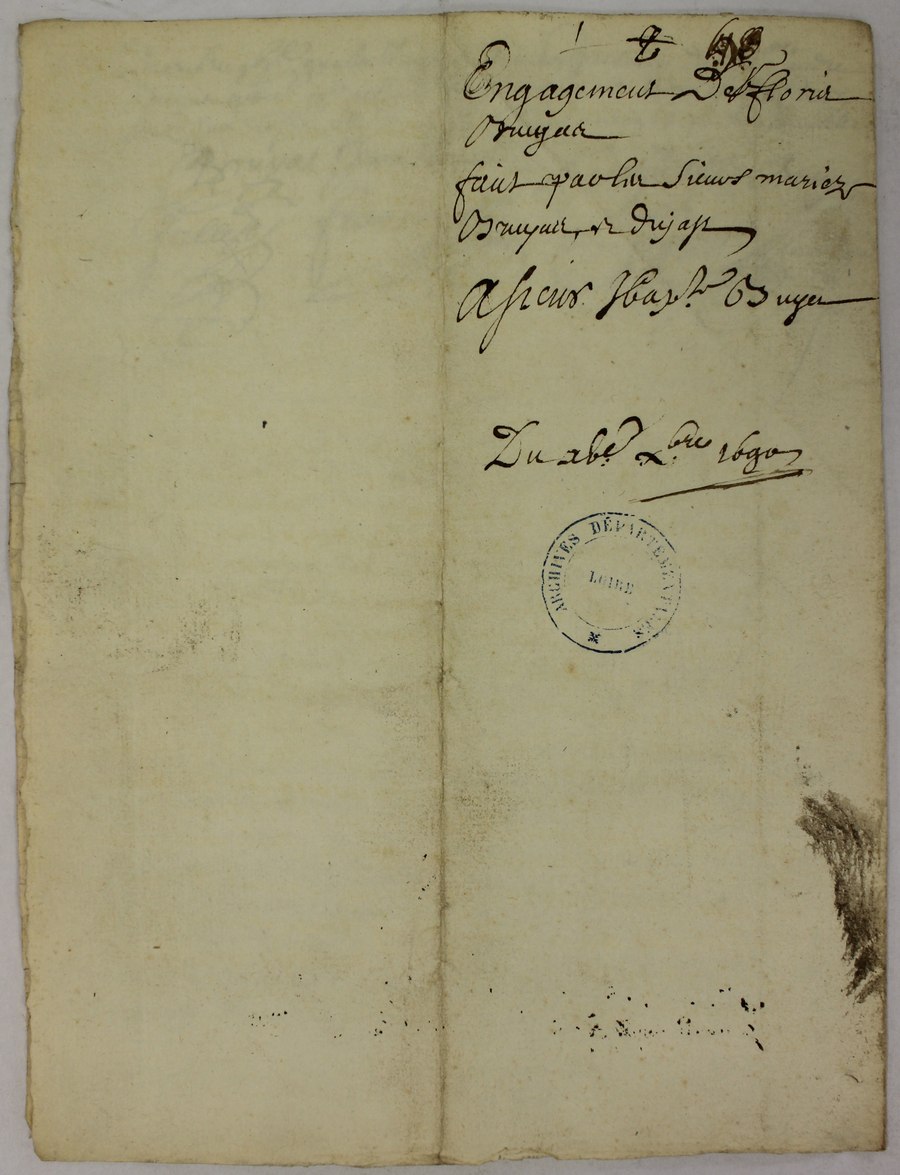 Engagement De floris
Bruyas
fait par les sieurs mariez
Bruyas, et dujast
A sieur Jbapte Bruyas
Du xbe xbre 1690
ARCHIVES DÉPARTEMENTALES
LOIRE